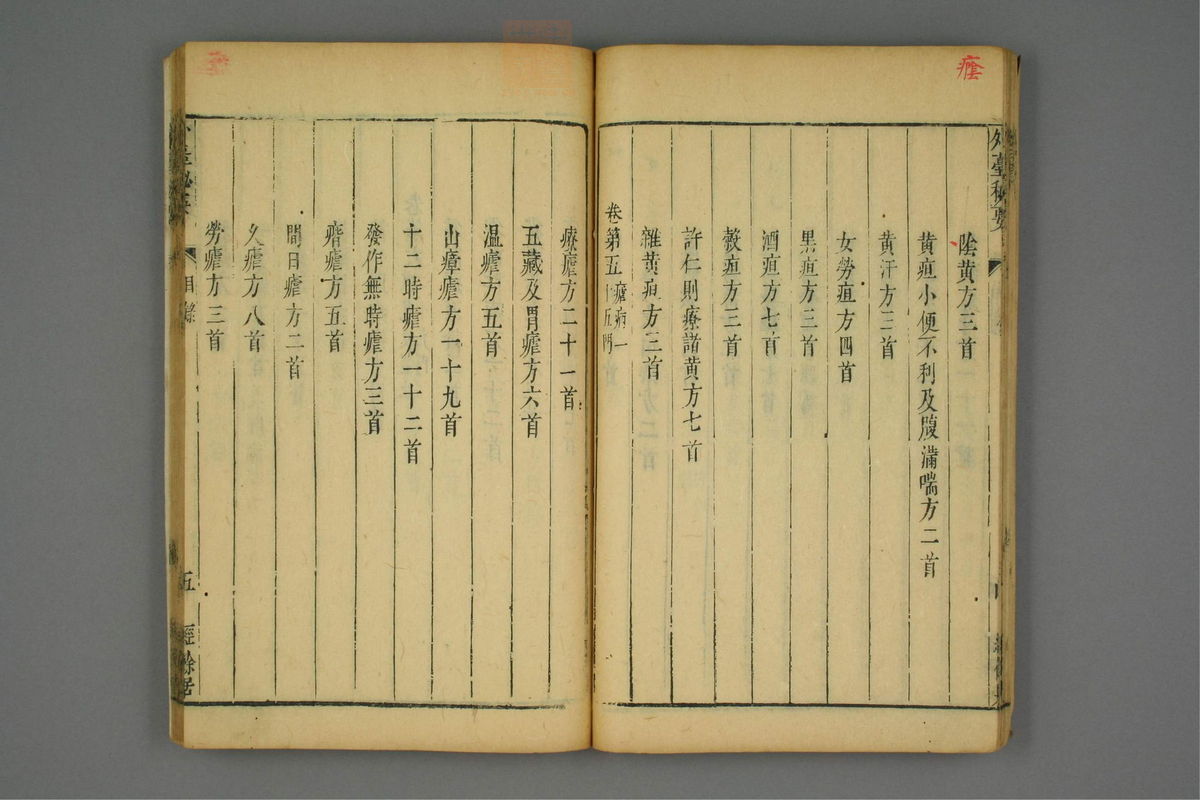 癊
外臺秘要
陰黃方三首
黃疸小便不利及腹滿喘方二首
黃汗方三首
女勞疸方四首
黑疸方三首
酒疸方七首
穀疸方三首
許仁則療諸黃方七首
雜黃疸方三首
卷第五瘧病一十五門
療瘧方二十一首
五藏及胃瘧方六首
温瘧方五首
山瘴瘧方一十九首
十二時瘧方一十二首
發作無時瘧方三首
瘖瘧方五首
間日瘧方二首
久瘧方八首
勞瘧方三首
目錄
五
經餘居